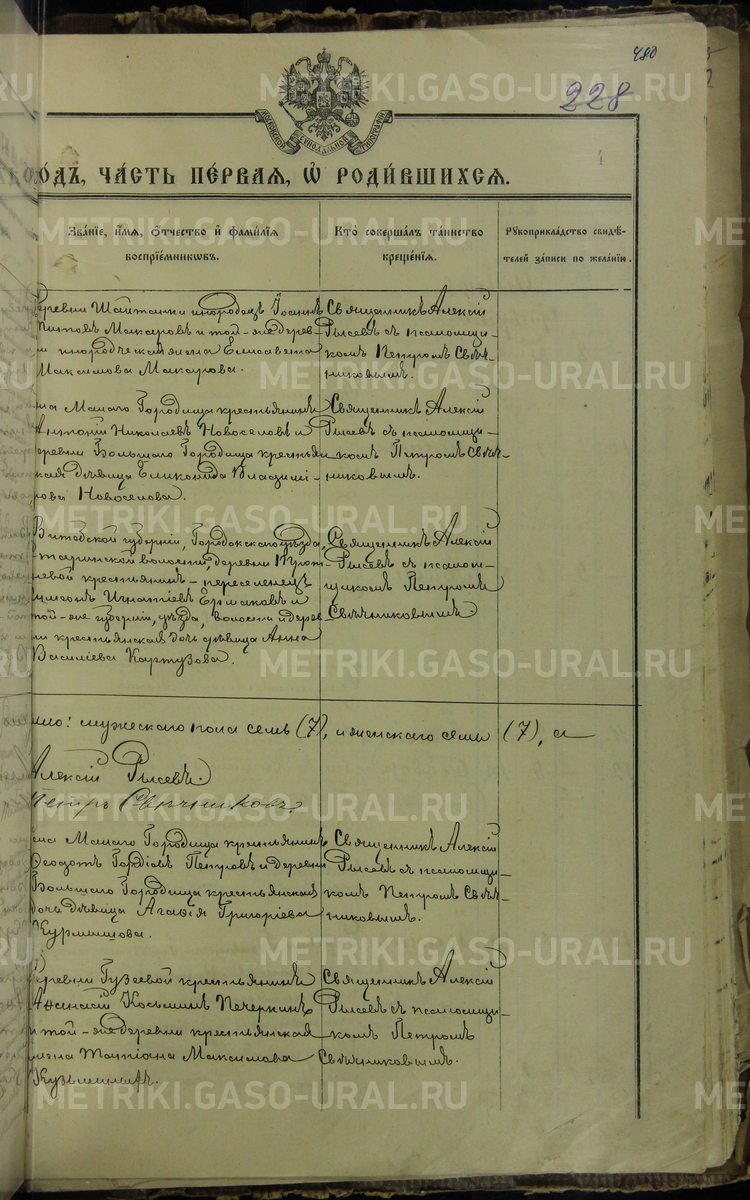 480
228
МОСКОВСКОЙ СѴНОДАЛЬНОЙ ТИПОГРАФІИ
ГОДЪ, ЧА́СТЬ ПЕ́РВАЯ, Ѽ РОДИ́ВШИХСЯ.
Зва́ніе, и́мя, о́тчество и҆ фами́лія
воспріе́мниковъ.
Кто̀ соверша́лъ та́инство
креще́нія.
Рукоприкла́дство свидѣ́-
телей за́писи по жела́нію.
Деревни Шайтанки инородецъ Іоаннъ
Титовъ Макаровъ и той-же дерев-
ни инородческая жена Елисавета
Максимова Макарова.
Священникъ Алексій
Рысевъ съ псаломщи-
комъ Петромъ Свѣч-
никовымъ.
Малаго Городища крестьянинъ
Антоній Николаевъ Новоселовъ и
деревни Большаго Городища крестьян-
ская дѣвица Еликонида Владимі-
рова Новоселова.
Священникъ Алексій
Рысевъ съ псаломщи-
комъ Петромъ Свѣч-
никовымъ.
Витебской губерніи, Городокскаго уѣзда,
волости, деревни
крестьянинъ-переселенецъ
Игнатіевъ Ермаковъ и
той-же губерніи, уѣзда, волости и дерев-
ни крестьянская дочь дѣвица Анна
Василіева Картузова.
Священникъ Алексій
Рысевъ съ псалом-
щикомъ Петромъ
Свѣчниковымъ
мужескаго пола семь (7), и женскаго семь (7), а
Алексій Рысевъ.
Петръ Свѣчниковъ.
Малаго Городища крестьянинъ
Ѳеодотъ Гордіевъ Петровъ и деревни
Большаго Городища крестьянская
дочь дѣвица Агаѳія Григоріева
Курмышова.
Священникъ Алексій
Рысевъ съ псаломщи-
комъ Петромъ Свѣч-
никовымъ.
Деревни Гузеевой крестьянинъ
Аѳанасій Косьминъ Печеркинъ
и той-же деревни крестьянская
жена Татіана Максимова
Кузьминыхъ.
Священникъ Алексій
Рысевъ съ псаломщи-
комъ Петромъ
Свѣчниковымъ.
METRIKI.GASO-URAL.RU